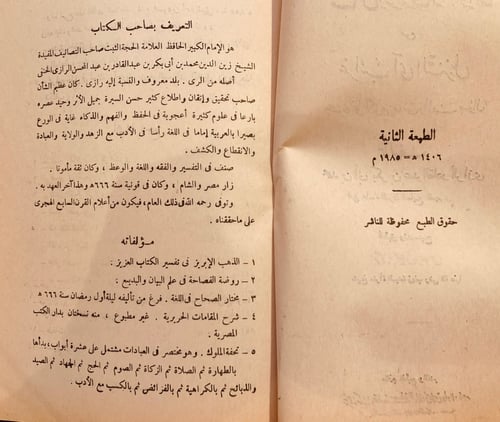 الطبعة الثانية
١٤٠٦ هـ = ١٩٨٥ م
حقوق الطبع محفوظة للناشر
التعريف بصاحب الكتاب
هو الإمام الكبير الحافظ العلامة الحجة الثبت صاحب التصانيف المفيدة
الشيخ زين الدين محمد بن أبى بكر بن عبد القادر بن عبد المحسن الرازى الحنفى
أصله من الرى . بلد معروف والنسبة إليه رازى . كان عظيم الشأن
صاحب تحقيق وإتقان واطلاع كثير حسن السيرة جميل الأثر وحيد عصره
بارعا فى علوم كثيرة أعجوبة فى الحفظ والفهم والذكاء غاية فى الورع
بصيرا بالعربية إماما فى اللغة رأسا فى الأدب مع الزهد والولاية والعبادة
والانقطاع والكشف .
صنف فى التفسير والفقه واللغة والوعظ ، وكان ثقة مأمونا .
زار مصر والشام ، وكان فى قونية سنة ٦٦٦ هـ وهذا آخر العهد به .
وتوفى رحمه الله فى ذلك العام ، فيكون من أعلام القرن السابع الهجرى
على ما حققناه .
مؤلفاته
١ – الذهب الإبريز فى تفسير الكتاب العزيز :
٢ – روضة الفصاحة فى علم البيان والبديع :
٣ – مختار الصحاح فى اللغة . فرغ من تأليفه ليلة أول رمضان سنة ٦٦٦ هـ
٤ – شرح المقامات الحريرية . غير مطبوع ، منه نسختان بدار الكتب
المصرية .
٥ – تحفة الملوك . وهو مختصر فى العبادات مشتمل على عشرة أبواب ، بدأها
بالطهارة ثم الصلاة ثم الزكاة ثم الصوم ثم الحج ثم الجهاد ثم الصيد
والذبائح ثم بالكراهية ثم بالفرائض ثم بالكسب مع الأدب .